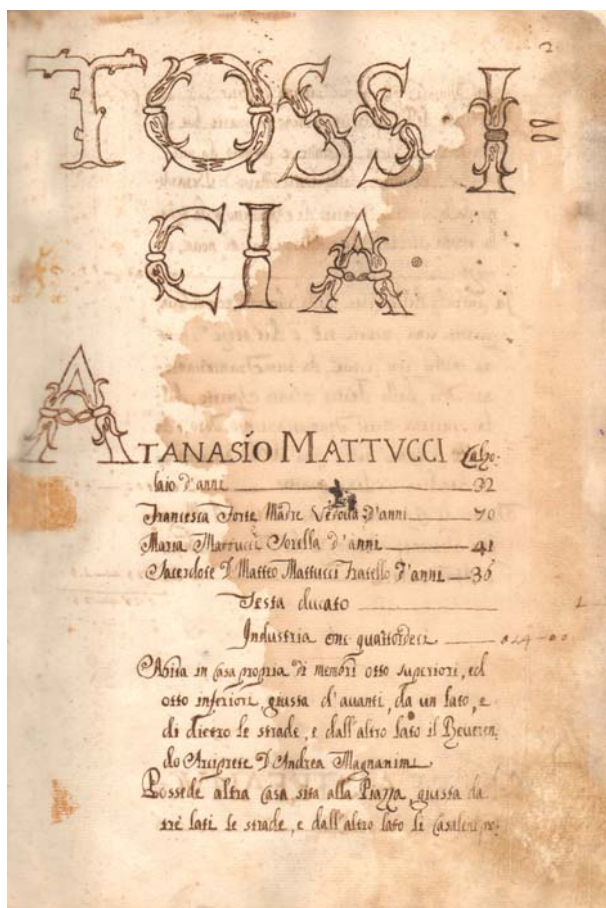 2
TOSSI=
CIA.
ATANASIO MATTVCCI Calzo:
laio d'anni 32
Francesca Forte Madre Vedova d'anni 70
Maria Mattucci Sorella d'anni 41
Sacerdote D. Matteo Mattucci Fratello d'anni 36
Testa ducato 1
Industria onc quattordeci 014-00
Abita in Casa propria di membri otto superiori, ed
otto inferiori giusta d'avanti, da un lato, e
di dietro le strade, e dall'altro lato il Reveren
do Arciprete D. Andrea Magnanimi
Possede altra Casa sita alla Piazza, giusta da
trè lati le strade, e dall'altro lato li Casaleni